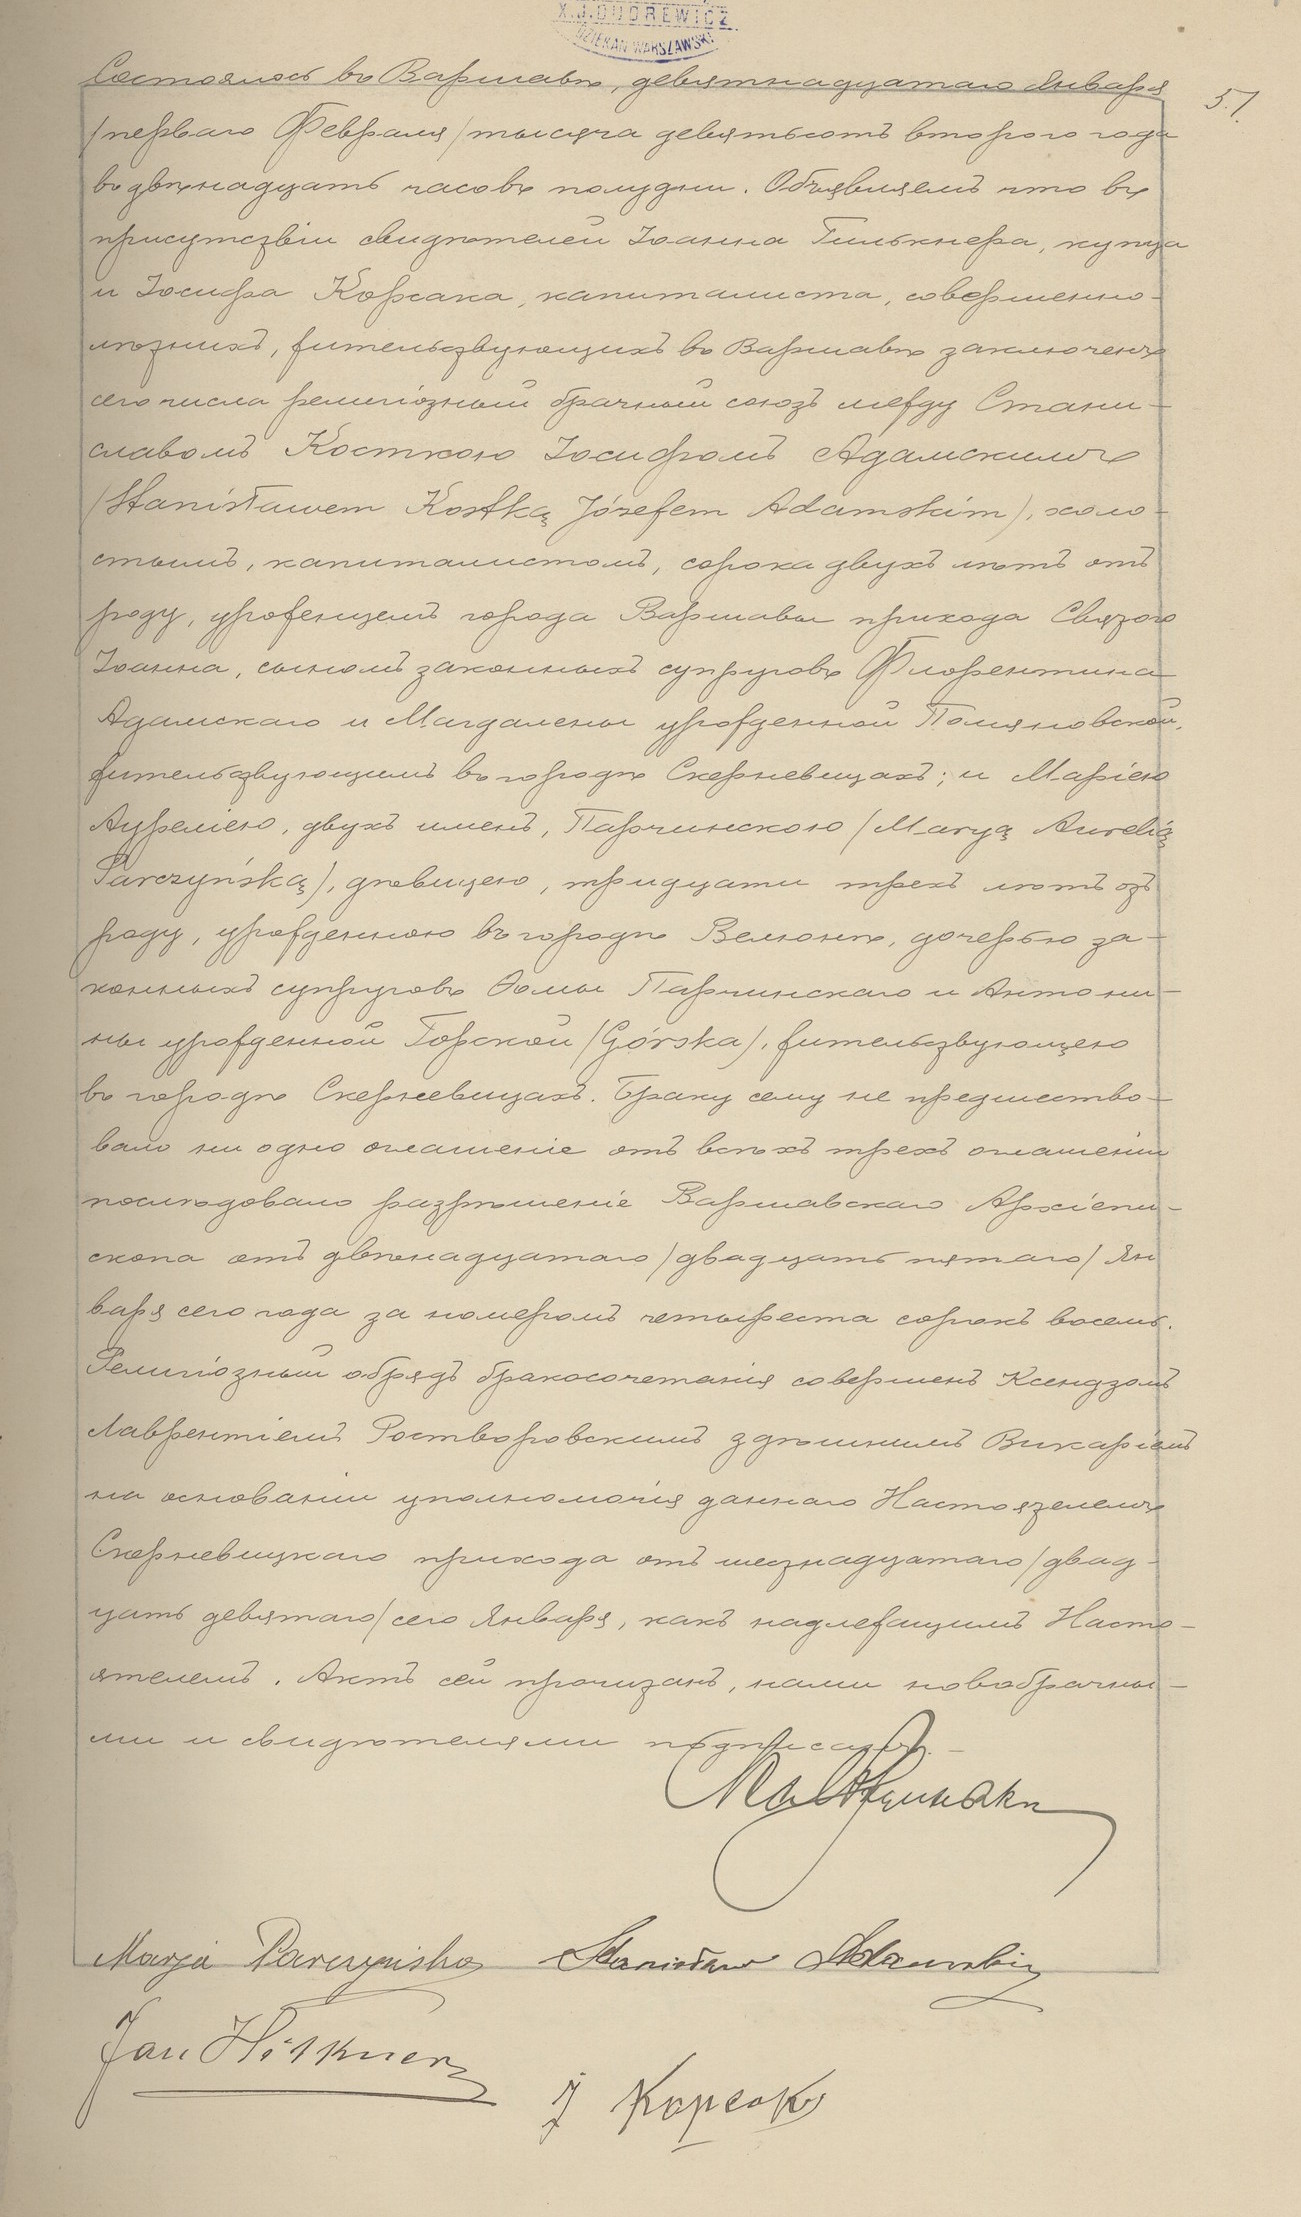 X.J.DUDREWICZ.
DZIEKAN WARSZAWSKI
Состоялось въ Варшавѣ, девятнадцатаго Января
57.
/перваго Февраля/ тысяча девятьсотъ второго года
въ двѣнадцать часовъ полудни. Объявляемъ что въ
присутствіи свидѣтелей Іоанна Гилькнера, купца
и Іосифа Корсака, капиталиста, совершенно-
лѣтнихъ, жительствующихъ въ Варшавѣ заключенъ
сего числа религіозный брачный союзъ между Стани-
славомъ Косткою Іосифомъ Адамскимъ
/Stanisławem Kostką Józefem Adamskim/, холо-
стымъ, капиталистомъ, сорока двухъ лѣтъ отъ
роду, урожденцемъ города Варшавы прихода Святого
Іоанна, сыномъ законныхъ супруговъ Флорентина
Адамскаго и Магдалены урожденной Поляновской,
жительствующимъ въ городѣ Скерневицахъ; и Маріею
Ауреліею, двухъ именъ, Парчинскою /Maryą Aurelią
Parczyńską/, дѣвицею, тридцати трехъ лѣтъ отъ
роду, урожденною въ городѣ Велюнѣ, дочерью за-
конныхъ супруговъ Ѳомы Парчинскаго и Антони-
ны урожденной Горской /Górska/, жительствующею
въ городѣ Скерневицахъ. Браку сему не предшество-
вало ни одно оглашеніе отъ всѣхъ трехъ оглашеній
послѣдовало разрѣшеніе Варшавскаго Архіепи-
скопа отъ двѣнадцатаго /двадцать пятаго/ Ян
варя сего года за номеромъ четыреста сорокъ восемь.
Религіозный обрядъ бракосочетанія совершенъ Ксендзомъ
Лаврентіемъ Ростворовскимъ здѣшнимъ Викаріемъ
на основаніи уполномочія даннаго Настоятелемъ
Скерневицкаго прихода отъ шестнадцатаго /двад-
цать девятаго/ сего Января, какъ надлежащимъ Насто-
ятелемъ. Актъ сей прочитанъ, нами новобрачны-
ми и свидѣтелями подписанъ.
Marja Parczyńska Stanisław Adamski
Jan Hilkner
J Корсак